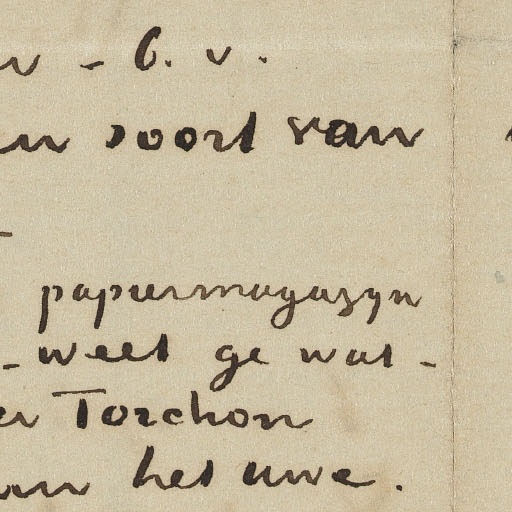 - b. v.
soort van
papiermagazyn
- weet ge wat -
Torchon
het uwe.